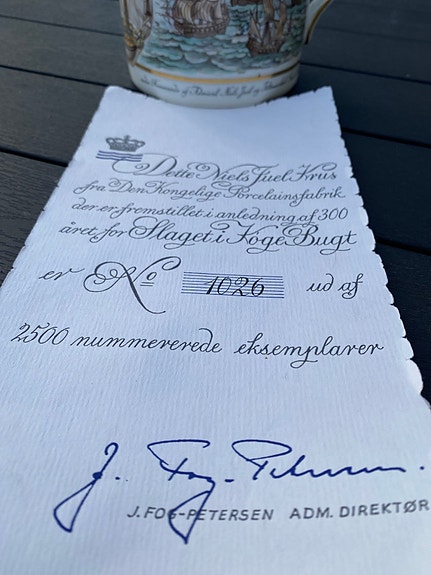 Dette Niels Juel Krus
fra Den Kongelige Porcelainsfabrik
der er fremstillet i anledning af 300
året for Slaget i Køge Bugt
er No 1026 ud af
2500 nummererede eksemplarer
J. Fog-Petersen
J. FOG-PETERSEN ADM. DIREKTØR